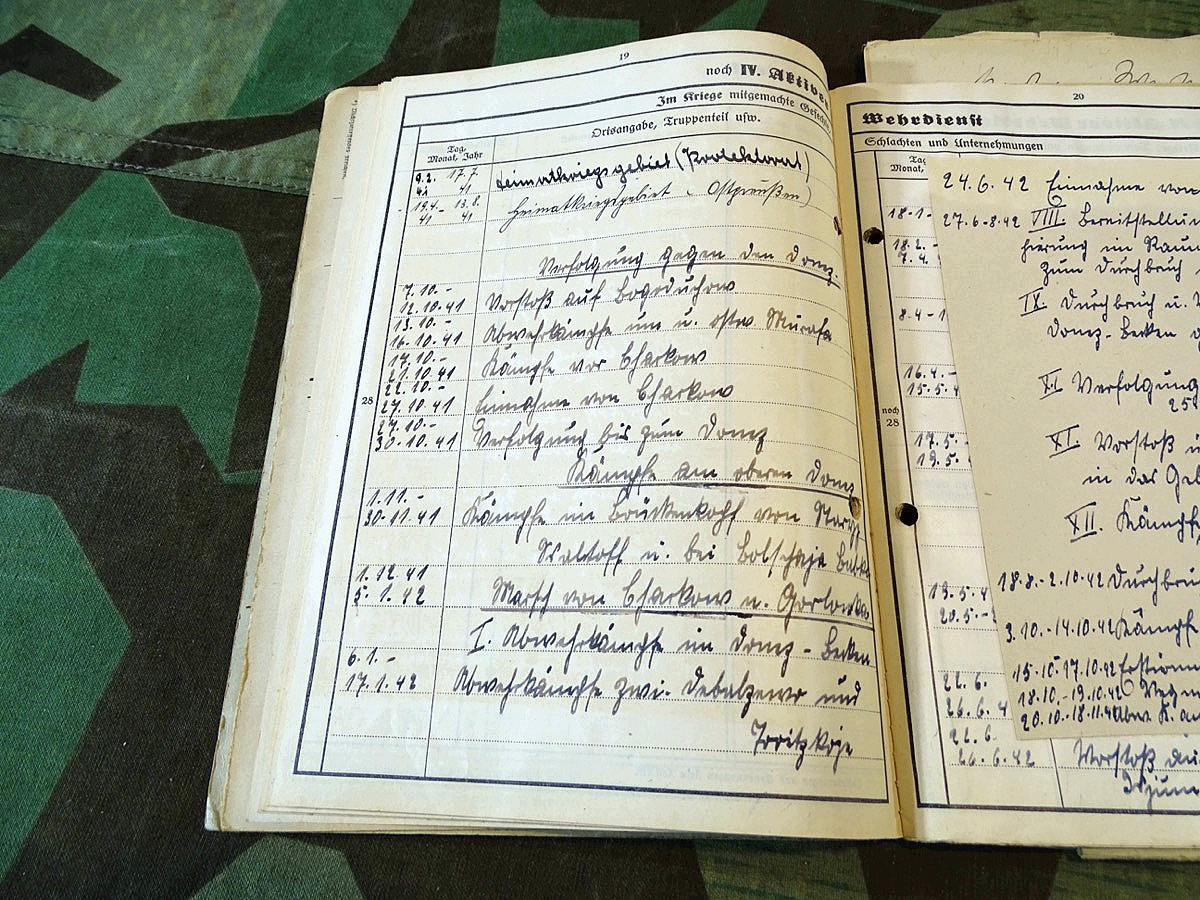 19
noch IV. Aktiver
Im Kriege mitgemachte Gefechte
Ortsangabe, Truppenteil usw.
Tag, Monat, Jahr
9.2. 17.7.
41 41
Heimatkriegsgebiet (Protektorat)
19.4. - 13.8.
41 41
Heimatkriegsgebiet (Ostpreußen)
Verfolgung gegen den Donez
7.10.-
12.10.41 Vorstoß auf Bogoduchow
13.10.-
16.10.41 Abwehrkämpfe um u. ostw. Murafa
17.10.-
21.10.41 Kämpfe vor Charkow
22.10.-
28 27.10.41 Einnahme von Charkow
27.10.-
30.10.41 Verfolgung bis zum Donez
Kämpfe am oberen Donez
1.11.-
30.11.41 Kämpfe im Brückenkopf von
u. bei Bolschaja
1.12.41
5.1.42 Marsch von Charkow n. Gorlowka
I. Abwehrkämpfe im Donez-Becken
6.1.-
17.1.42 Abwehrkämpfe zwi. Debalzewo und
Troitzkoje
20
Wehrdienst
Schlachten und Unternehmungen
Tag
Monat,
18.1-
18.2.-
7.4.
8.4-1
16.4.-
15.5.4
noch
28
17.5.-
19.5.
19.5.4
20.5.-
22.6.
26.6.4
22.6
26.6.42 Vorstoß
Isjum
24.6.42 Einnahme von
27.6-8.42 VIII. Bereitstellu
im Raum
zum Durchbruch
IX. Durchbruch u.
Donez-Becken
XI Verfolgung
25
XI. Vorstoß
in das Geb
XII. Kämpfe
18.8.-2.10.42 Durchbru
3.10.-14.10.42 Kämpfe
15.10-17.10.42
18.10.-19.10.42
20.10.-18.11.42 Abw. K.